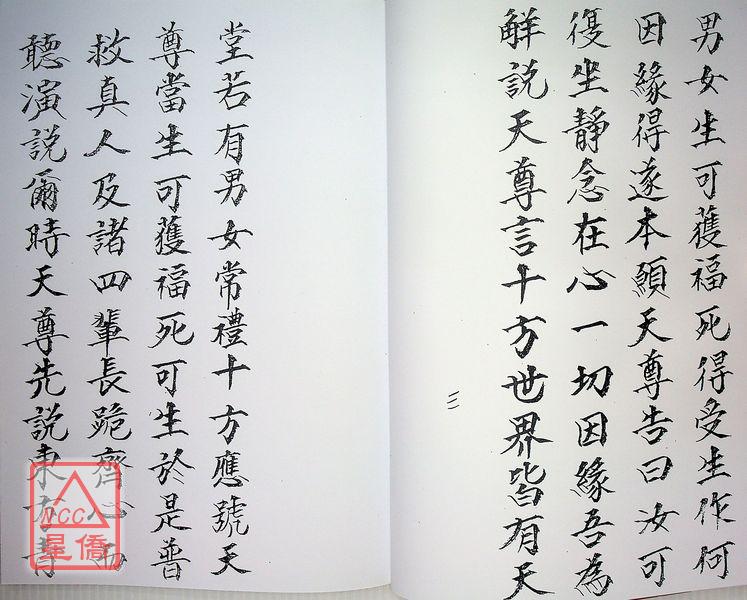 男女生可獲福死得受生作何
因緣得遂本願天尊告曰汝可
復坐靜念在心一切因緣吾為
解說天尊言十方世界皆有天
三
堂若有男女常禮十方應號天
尊當生可獲福死可生於是普
救真人及諸四輩長跪齊心而
聽演說爾時天尊先說東方青
NCC
星僑